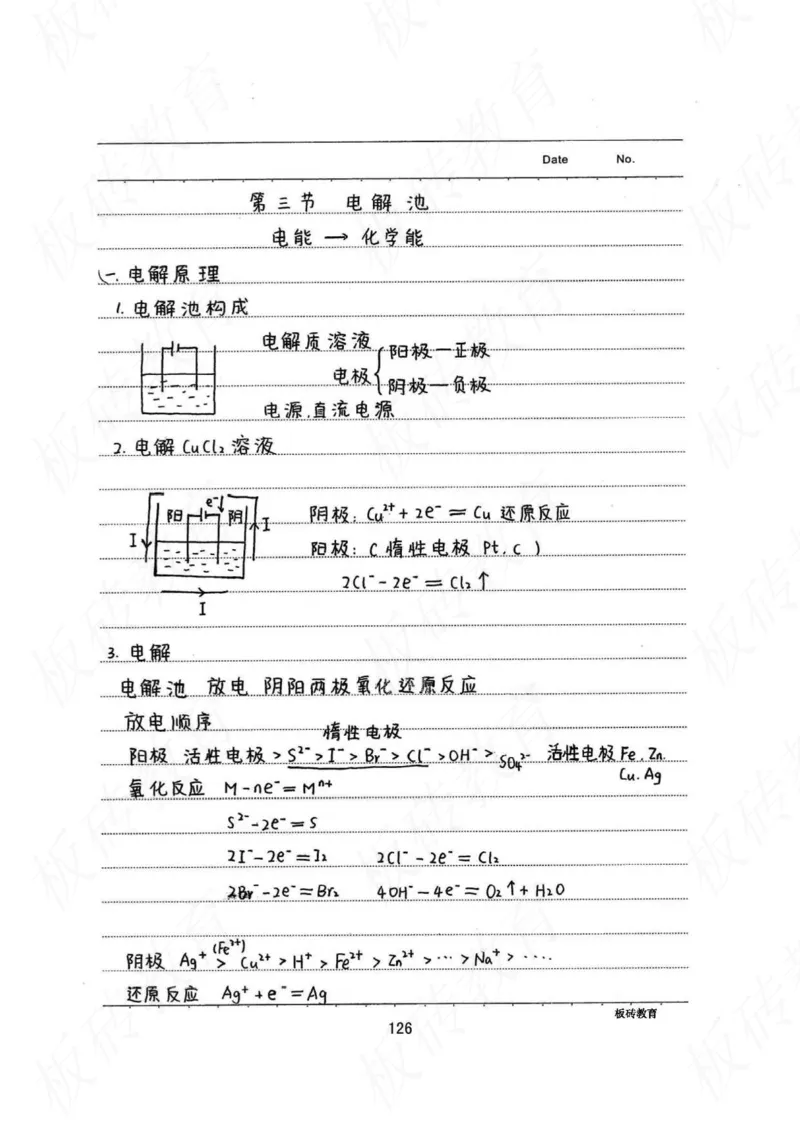 Date No.
第三节 电解池
电能 → 化学能
一. 电解原理
1. 电解池构成
电解质溶液
电极 { 阳极—正极
阴极—负极
电源.直流电源
2. 电解 CuCl₂ 溶液
阳 e⁻ 阴
I I
I
阴极: Cu²⁺ + 2e⁻ = Cu 还原反应
阳极: ( 惰性电极 Pt. C )
2Cl⁻ - 2e⁻ = Cl₂ ↑
3. 电解
电解池 放电 阴阳两极氧化还原反应
放电顺序
惰性电极
阳极 活性电极 > S²⁻ > I⁻ > Br⁻ > Cl⁻ > OH⁻ > SO₄²⁻ 活性电极 Fe. Zn.
Cu. Ag
氧化反应 M - ne⁻ = Mⁿ⁺
S²⁻ - 2e⁻ = S
2I⁻ - 2e⁻ = I₂ 2Cl⁻ - 2e⁻ = Cl₂
2Br⁻ - 2e⁻ = Br₂ 4OH⁻ - 4e⁻ = O₂ ↑ + H₂O
阴极 Ag⁺ > (Fe³⁺) Cu²⁺ > H⁺ > Fe²⁺ > Zn²⁺ > ··· > Na⁺ > ····
还原反应 Ag⁺ + e⁻ = Ag
板砖教育
126